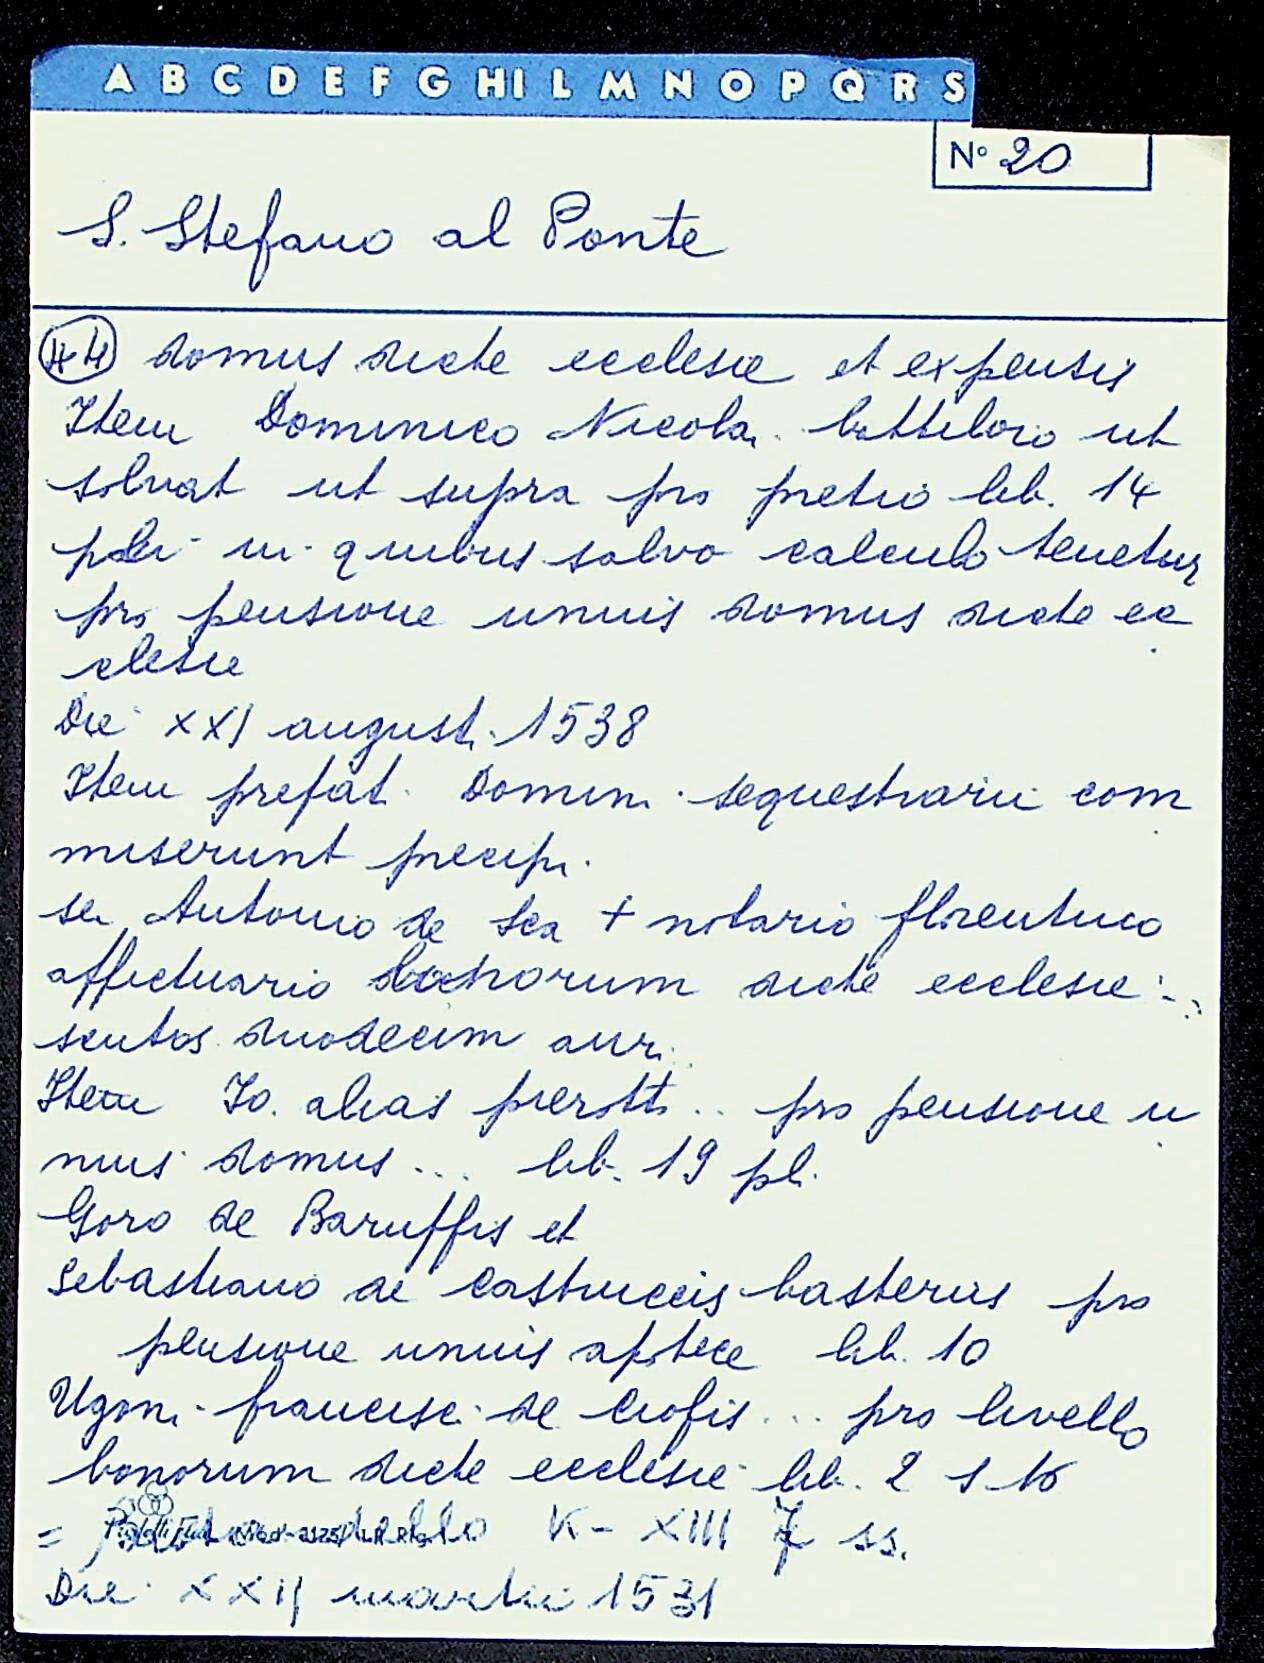 A B C D E F G H I L M N O P Q R S
N° 20
S. Stefano al Ponte
44 domus dicte ecclesie et expensis
Item Dominico Nicola. battiloro ut
solvat ut supra pro pretio lib. 14
pli in quibus salvo calculo tenetur
pro pensione unius domus dicte ec
clesie
Die XXI august. 1538
Item prefat. Domin. sequestrarii com
miserunt precip.
se. Antonio de sca + notario florentino
affictuario bonorum dicte ecclesie ...
scutos duodecim aur.
Item Io. alias pierott. .. pro pensione u
nius domus ... lib. 19 pl.
Goro de Baruffis et
Sebastiano de Castruccis basteriis pro
pensione unius apotece lib. 10
Ugon. francisc. de Ciofis ... pro livello
bonorum dicte ecclesie lib. 2 s 16
= K - XIII 7 ss.
Die XXII martii 1531